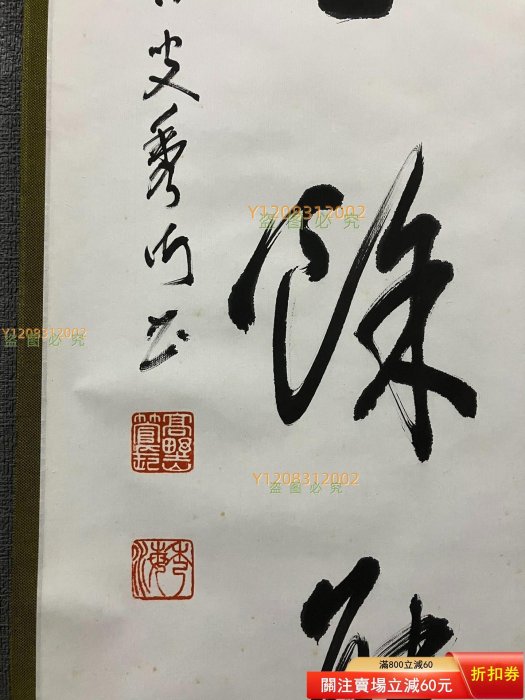 餘
叟秀
高野山
管長
秀海
Y1208312002
盗图必究
Y1208312002
盗图必究
Y1208312002
盗图必究
滿800立減60
關注賣場立減60元
折扣券